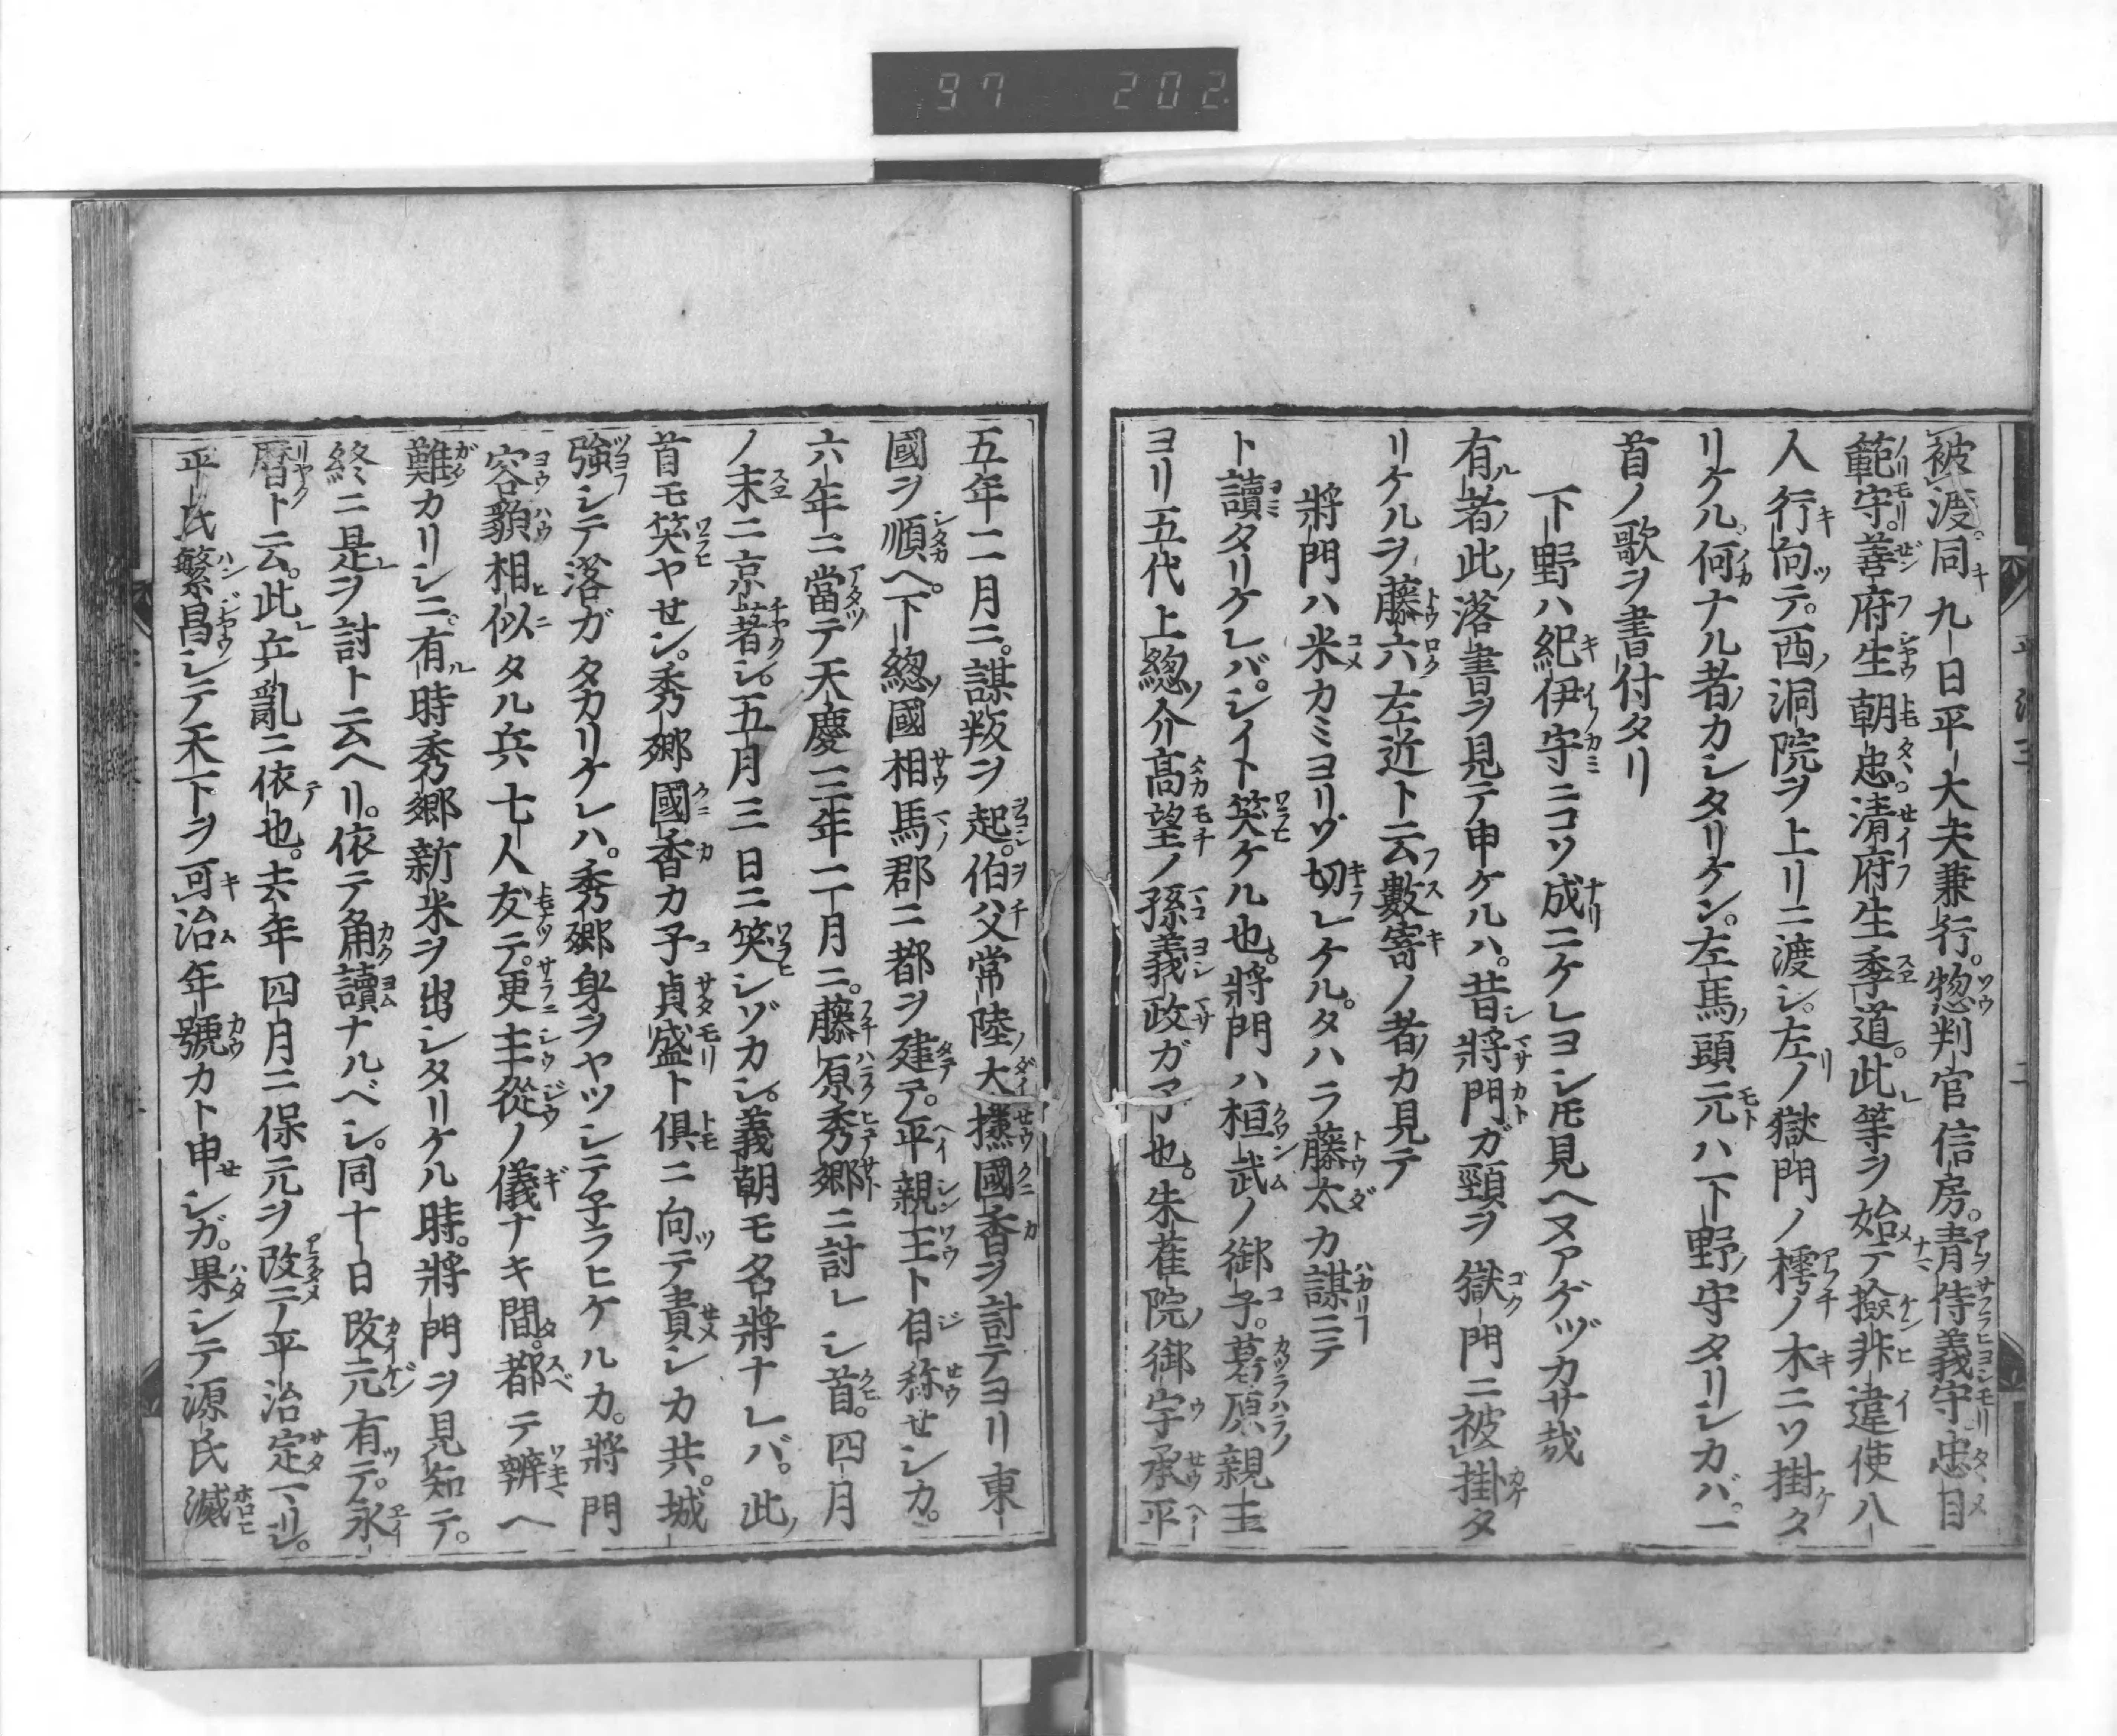 97 202
被渡。同九日平大夫兼行。惣判官信房。青侍義守忠目
範守。善府生朝忠。清府生季道。此等ヲ始テ撿非違使八
人行向テ。西洞院ヲ上リニ渡シ。左ノ獄門ノ樗ノ木ニソ掛タ
リケル。何ナル者カシタリケン。左馬頭元ハ下野守タリシカバ。一
首ノ歌ヲ書付タリ
下野ハ紀伊守ニコソ成ニケレヨシトモ見ヘヌアゲヅカサ哉
有者此落書ヲ見テ申ケルハ。昔將門ガ頸ヲ獄門ニ被掛タ
リケルヲ藤六左近ト云數寄ノ者カ見テ
將門ハ米カミヨリゾ切レケル。タハラ藤太カ謀ニテ
ト讀タリケレバ。シイト笑ケル也。將門ハ桓武ノ御子。葛原親王
ヨリ五代上總介髙望ノ孫義政ガ子也。朱雀院御宇承平
五年二月ニ。謀叛ヲ起。伯父常陸大掾國香ヲ討テヨリ東
國ヲ順ヘ。下總國相馬郡ニ都ヲ建テ。平親王ト自称せシカ。
六年ニ當テ天慶三年二月ニ。藤原秀郷ニ討レシ首。四月
ノ末ニ京著シ。五月三日ニ笑シゾカシ。義朝モ名將ナレバ。此
首モ笑ヤせン。秀郷國香カ子貞盛ト俱ニ向テ責シカ共。城
強シテ落ガタカリケレハ。秀郷身ヲヤツシテ子ラヒケルカ。將門
容貌相似タル兵七人友テ。更主從ノ儀ナキ間。都テ辨ヘ
難カリシニ。有時秀郷新米ヲ出シタリケル時。將門ヲ見知テ。
終ニ是ヲ討ト云ヘリ。依テ角讀ナルベシ。同十日改元有テ。永
曆ト云。此兵亂ニ依也。去年四月ニ保元ヲ改テ平治定マリシ。
平氏繁昌シテ天下ヲ可治年號カト申せシガ。果シテ源氏滅